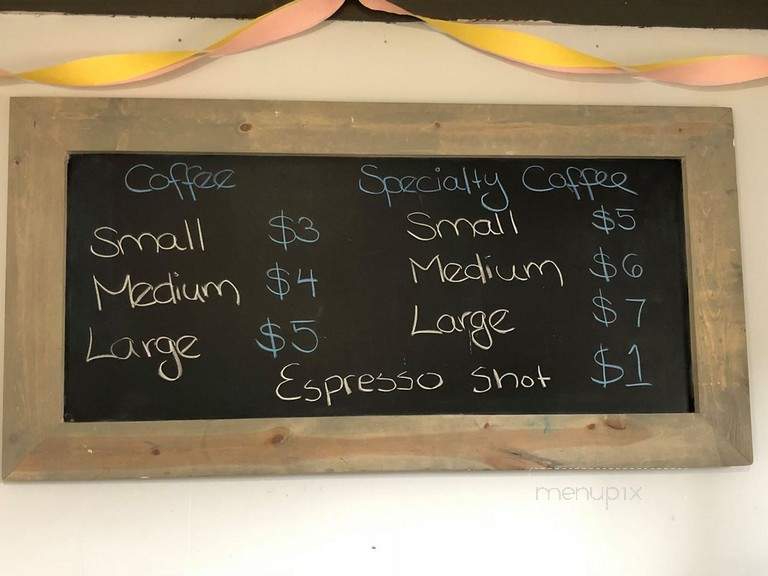 Coffee
Small $3
Medium $4
Large $5
Specialty Coffee
Small $5
Medium $6
Large $7
Espresso Shot $1
menupix